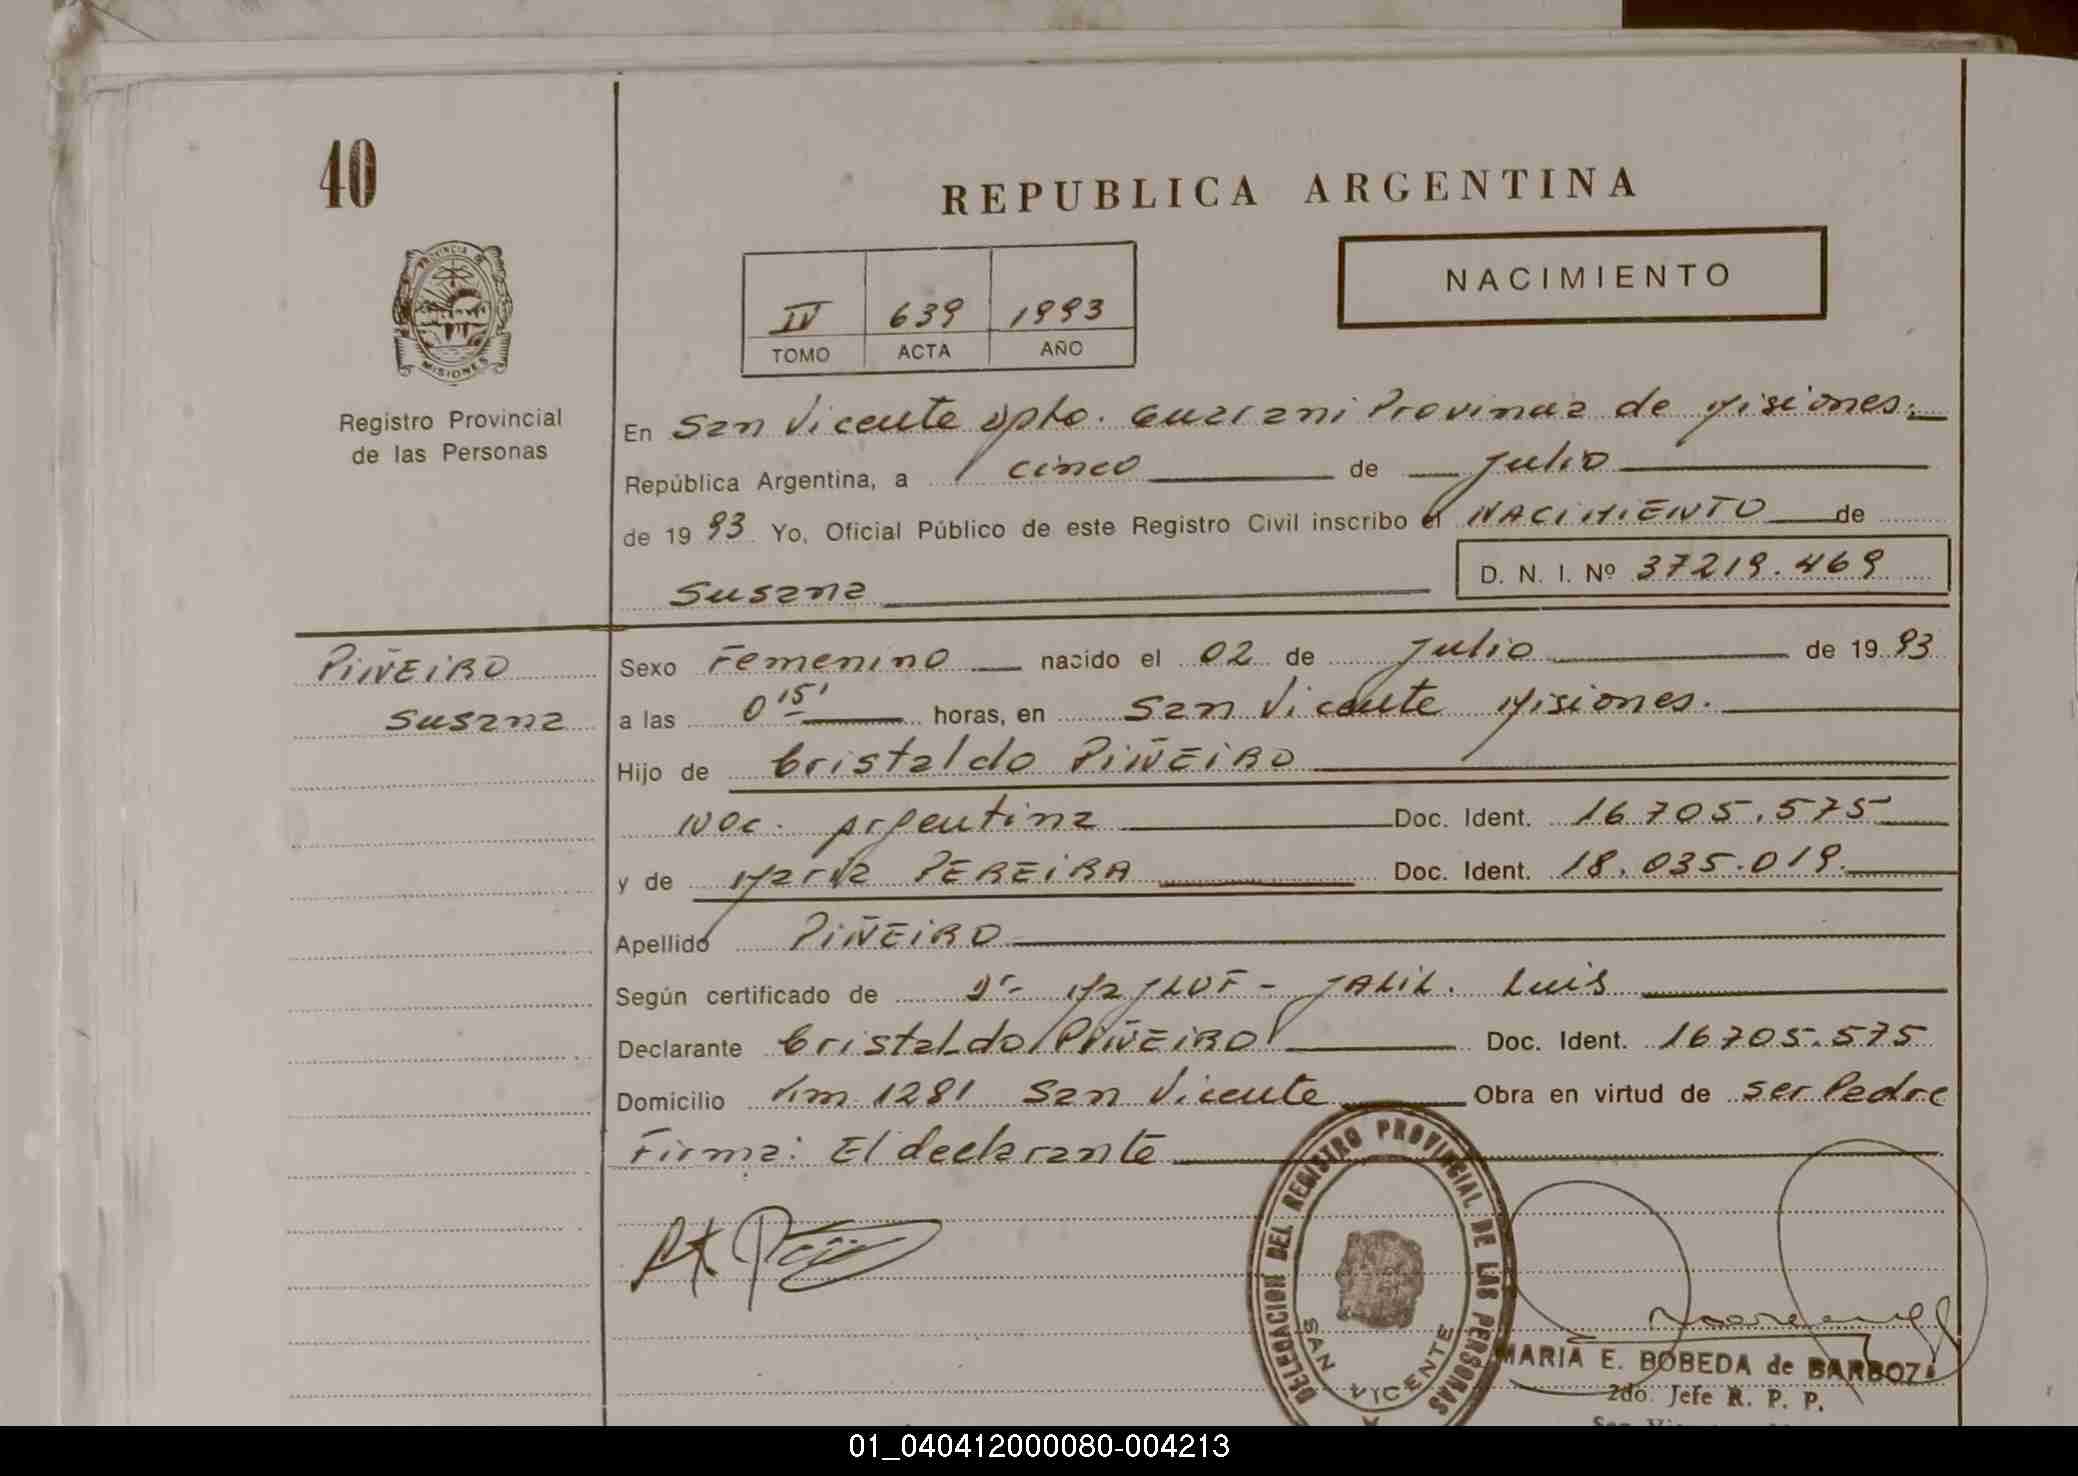 40
REPUBLICA ARGENTINA
PROVINCIA DE
MISIONES
NACIMIENTO
IV 639 1993
TOMO ACTA AÑO
Registro Provincial
de las Personas
En San Vicente Dpto. Guarani Provincia de Misiones.
República Argentina, a cinco de Julio
de 1993 Yo, Oficial Público de este Registro Civil inscribo el NACIMIENTO de
Susana D. N. I. Nº 37219.469
PIÑEIRO
Susana
Sexo Femenino nacido el 02 de Julio de 1993
a las 0 15' horas, en San Vicente Misiones.
Hijo de Cristaldo PIÑEIRO
Nac. Argentina Doc. Ident. 16705.575
y de Maria PEREIRA Doc. Ident. 18.035.019.
Apellido PIÑEIRO
Según certificado de Dr- JALIL. Luis
Declarante Cristaldo PIÑEIRO Doc. Ident. 16705.575
Domicilio Km 1281 San Vicente Obra en virtud de ser Padre
Firma: El declarante
DELEGACION DEL REGISTRO PROVINCIAL DE LAS PERSONAS
SAN VICENTE
MARIA E. BOBEDA de BARBOZA
2do. Jefe R. P. P.
01_040412000080-004213